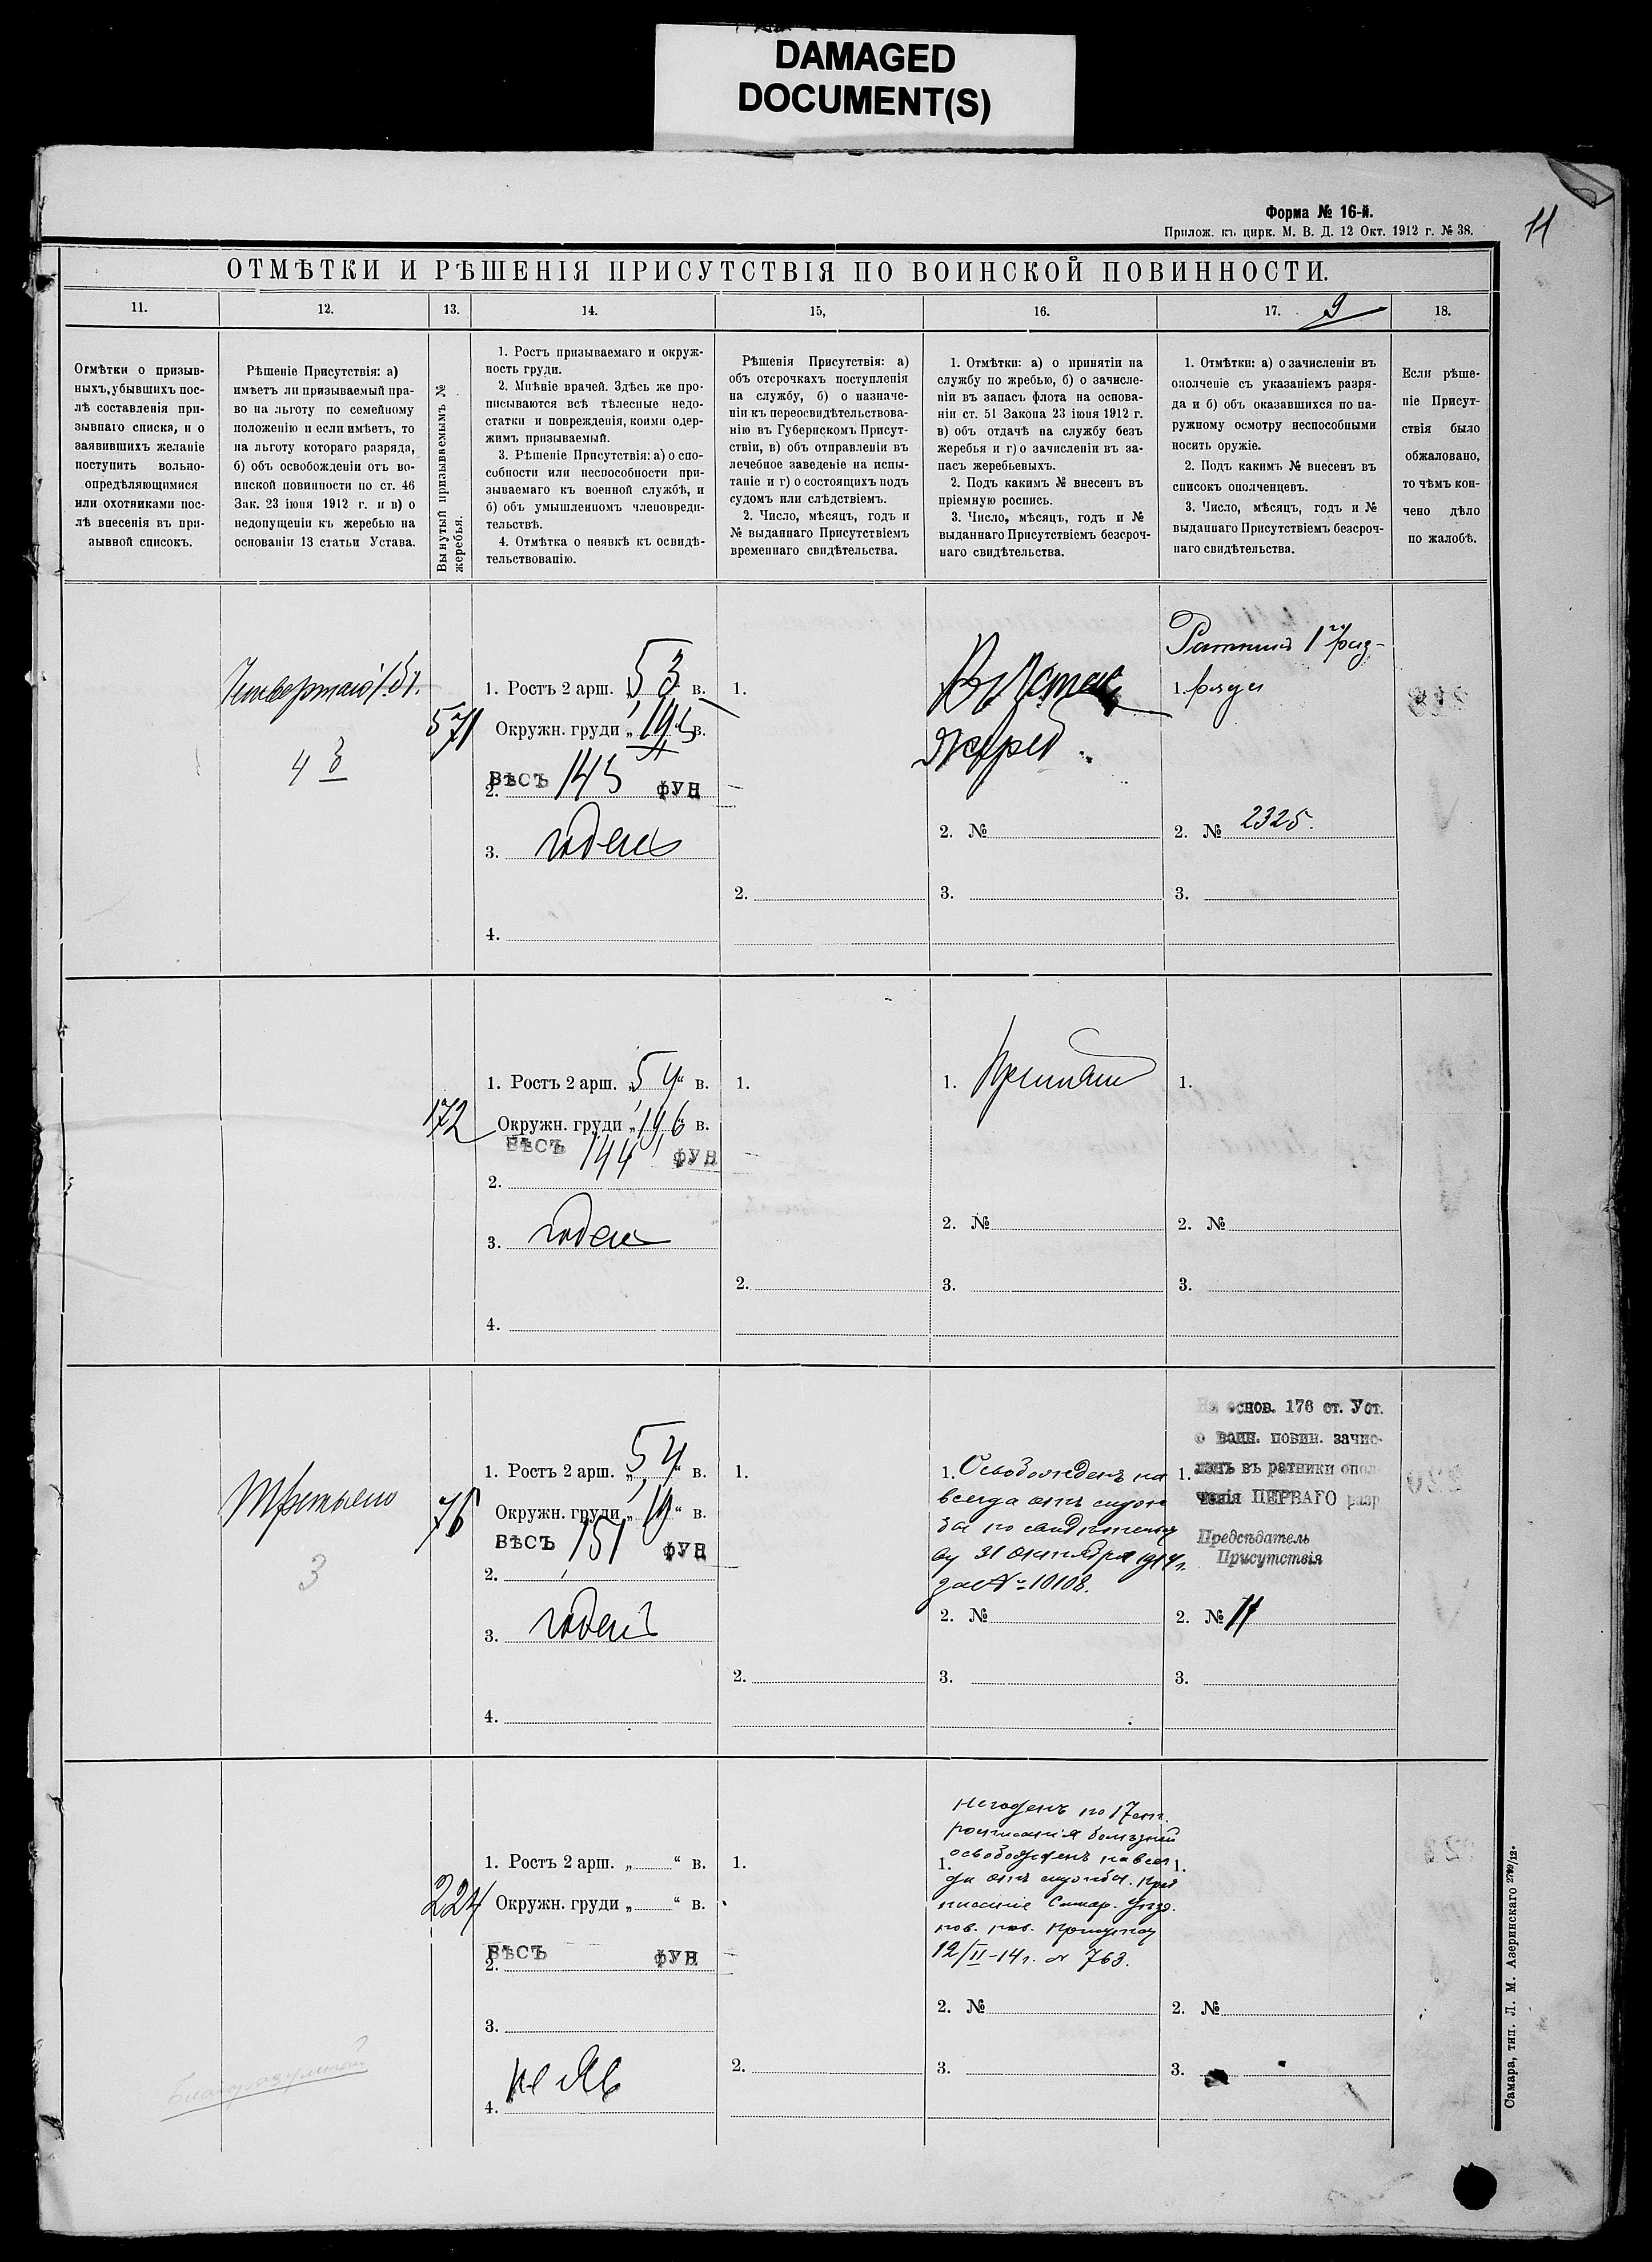 DAMAGED
DOCUMENT(S)
Форма № 16-й.
Прилож. къ цирк. М. В. Д. 12 Окт. 1912 г. № 38.
11
ОТМѢТКИ И РѢШЕНІЯ ПРИСУТСТВІЯ ПО ВОИНСКОЙ ПОВИННОСТИ.
11.
12.
13.
14.
15,
16.
17. 9
18.
Отмѣтки о призыв-
ныхъ, убывшихъ пос-
лѣ составленія при-
зывнаго списка, и о
заявившихъ желаніе
поступить вольно-
опредѣляющимися
или охотниками пос-
лѣ внесенія въ при-
зывной списокъ.
Рѣшеніе Присутствія: а)
имѣетъ ли призываемый пра-
во на льготу по семейному
положенію и если имѣетъ, то
на льготу котораго разряда,
б) объ освобожденіи отъ во-
инской повинности по ст. 46
Зак. 23 іюня 1912 г. и в) о
недопущеніи къ жеребью на
основаніи 13 статьи Устава.
Вынутый призываемымъ №
жеребья.
1. Ростъ призываемаго и окруж-
ность груди.
2. Мнѣніе врачей. Здѣсь же про-
писываются всѣ тѣлесные недо-
статки и поврежденія, коими одер-
жимъ призываемый.
3. Рѣшеніе Присутствія: а) о спо-
собности или неспособности при-
зываемаго къ военной службѣ, и
б) объ умышленномъ членовреди-
тельствѣ.
4. Отмѣтка о неявкѣ къ освидѣ-
тельствованію.
Рѣшенія Присутствія: а)
объ отсрочкахъ поступленія
на службу, б) о назначе-
ніи къ переосвидѣтельствова-
нію въ Губернскомъ Присут-
ствіи, в) объ отправленіи въ
лечебное заведеніе на испы-
таніе и г) о состоящихъ подъ
судомъ или слѣдствіемъ.
2. Число, мѣсяцъ, годъ и
№ выданнаго Присутствіемъ
временнаго свидѣтельства.
1. Отмѣтки: а) о принятіи на
службу по жребью, б) о зачисле-
ніи въ запасъ флота на основа-
ніи ст. 51 Закона 23 іюня 1912 г.
в) объ отдачѣ на службу безъ
жеребья и г) о зачисленіи въ за-
пасъ жеребьевыхъ.
2. Подъ какимъ № внесенъ въ
пріемную роспись.
3. Число, мѣсяцъ, годъ и №
выданнаго Присутствіемъ безсроч-
наго свидѣтельства.
1. Отмѣтки: а) о зачисленіи въ
ополченіе съ указаніемъ разря-
да и б) объ оказавшихся по на-
ружному осмотру неспособными
носить оружіе.
2. Подъ какимъ № внесенъ въ
списокъ ополченцевъ.
3. Число, мѣсяцъ, годъ и №
выданнаго Присутствіемъ безсроч-
наго свидѣтельства.
Если рѣше-
ніе Присут-
ствія было
обжаловано,
то чѣмъ кон-
чено дѣло
по жалобѣ.
571
1. Ростъ 2 арш. „ 53 в.
Окружн. груди „ в.
ВѢСЪ 145 ФУН
2.
3. годенъ
4.
1.
2.
жереб
2. №
3.
Ратникъ 1го раз-
1. ряда
2. № 2325.
3.
172
1. Ростъ 2 арш. „ 54 “ в.
Окружн. груди „ 196 в.
ВѢСЪ 144 ФУН
2.
3. годенъ
4.
1.
2.
1. Принят
2. №
3.
1.
2. №
3.
Третьяго
3
76
1. Ростъ 2 арш. „ 54 “ в.
Окружн. груди „ 19 “ в.
ВѢСЪ 151 ФУН
2.
3. годенъ
4.
1.
2.
1. Освобожденъ на
всегда отъ служ
бы по свидѣтельст
ву 31 октября 1914 г.
за № 10108.
2. №
3.
На основ. 176 ст. Уст.
о воин. повин. зачис-
1. ленъ въ ратники опол-
ченія ПЕРВАГО разр
Предсѣдатель
Присутствія
2. № 11
3.
224
1. Ростъ 2 арш. „ “ в.
Окружн. груди „ “ в.
ВѢСЪ ФУН
2.
3.
4. не яв
1.
2.
негоденъ по 17 ст.
росписанія болѣзней
1. освобожденъ навсег
да отъ службы. Пред
писаніе Самар. Уѣзд.
12/II-14 г. № 763.
2. №
3.
1.
2. №
3.
Самара, тип. Л. М. Азеринскаго